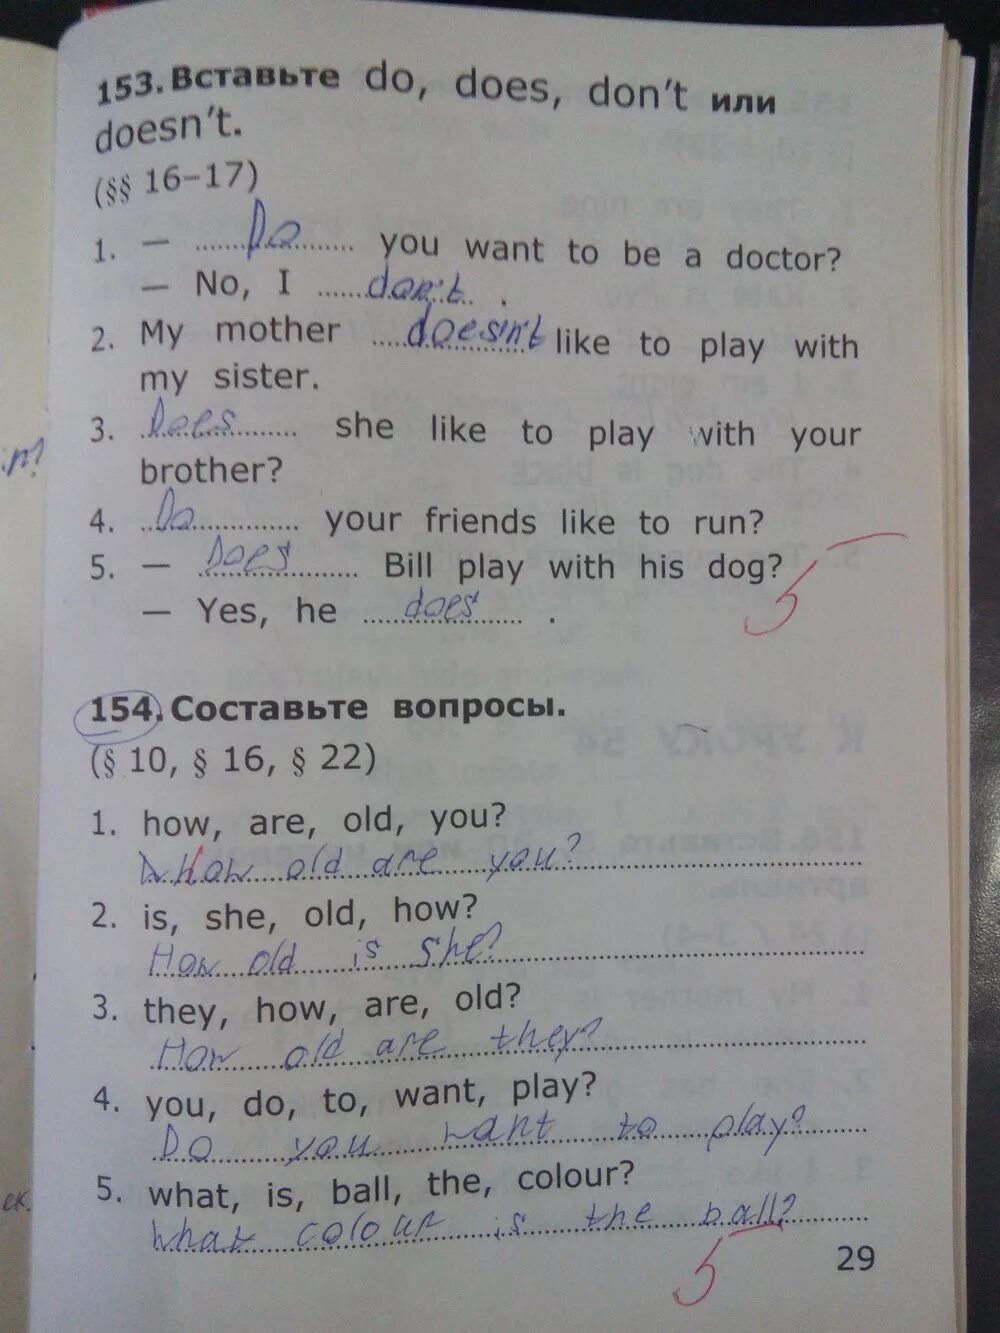 153. Вставьте do, does, don't или
doesn't.
(§§ 16–17)
1. — Do you want to be a doctor?
— No, I don't .
2. My mother doesn't like to play with
my sister.
3. Does she like to play with your
brother?
4. Do your friends like to run?
5. — Does Bill play with his dog?
— Yes, he does .
5
154. Составьте вопросы.
(§ 10, § 16, § 22)
1. how, are, old, you?
How old are you?
2. is, she, old, how?
How old is she?
3. they, how, are, old?
How old are they?
4. you, do, to, want, play?
Do you want to play?
5. what, is, ball, the, colour?
What colour is the ball?
5
29